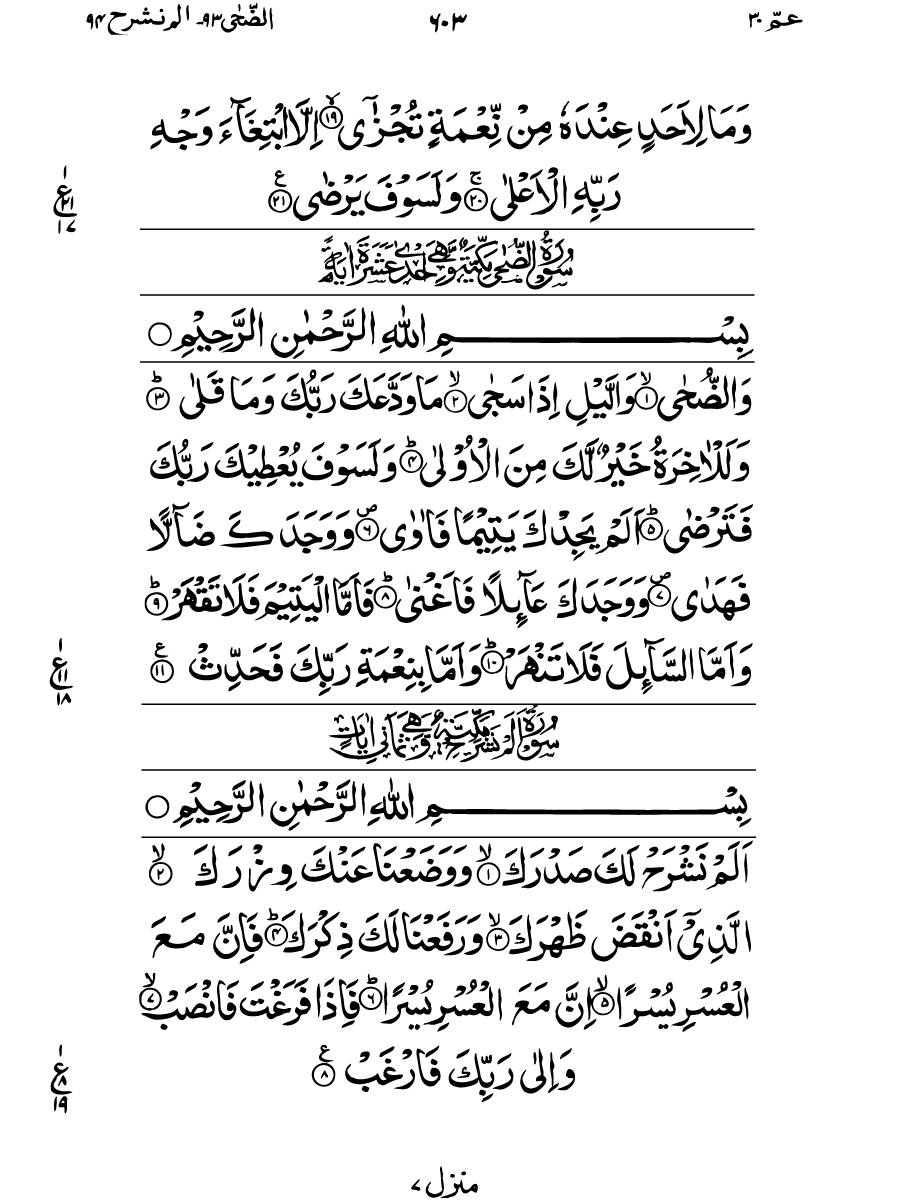 عمّ ۳۰ ۶۰۳ الضّحٰی ۹۳۔ الم نشرح ۹۴
وَمَا لِاَحَدٍ عِنْدَهٗ مِنْ نِّعْمَةٍ تُجْزٰٓى ۙ‏﴿۱۹﴾ اِلَّا ابْتِغَآءَ وَجْهِ
رَبِّهِ الْاَعْلٰى ۚ‏﴿۲۰﴾ وَلَسَوْفَ يَرْضٰى ﴿۲۱﴾ ع
۱ ع ۲۱ ۱۷
سُوْرَةُ الضُّحٰى مَكِّيَّةٌ وَّهِيَ اِحْدٰى عَشْرَةَ اٰيَةً
بِسْمِ اللّٰهِ الرَّحْمٰنِ الرَّحِيْمِ ○
وَالضُّحٰى ۙ‏﴿۱﴾ وَالَّيْلِ اِذَا سَجٰى ۙ‏﴿۲﴾ مَا وَدَّعَكَ رَبُّكَ وَمَا قَلٰى ؕ‏﴿۳﴾
وَلَلْاٰخِرَةُ خَيْرٌ لَّكَ مِنَ الْاُوْلٰى ؕ‏﴿۴﴾ وَلَسَوْفَ يُعْطِيْكَ رَبُّكَ
فَتَرْضٰى ؕ‏﴿۵﴾ اَلَمْ يَجِدْكَ يَتِيْمًا فَاٰوٰى ۪‏﴿۶﴾ وَوَجَدَكَ ضَآلًّا
فَهَدٰى ۪‏﴿۷﴾ وَوَجَدَكَ عَآئِلًا فَاَغْنٰى ؕ‏﴿۸﴾ فَاَمَّا الْيَتِيْمَ فَلَا تَقْهَرْ ؕ‏﴿۹﴾
وَاَمَّا السَّآئِلَ فَلَا تَنْهَرْ ؕ‏﴿۱۰﴾ وَاَمَّا بِنِعْمَةِ رَبِّكَ فَحَدِّثْ ﴿۱۱﴾ ع
۱ ع ۱۱ ۱۸
سُوْرَةُ اَلَمْ نَشْرَحْ مَكِّيَّةٌ وَّهِيَ ثَمَانِي اٰيَاتٍ
بِسْمِ اللّٰهِ الرَّحْمٰنِ الرَّحِيْمِ ○
اَلَمْ نَشْرَحْ لَكَ صَدْرَكَ ۙ‏﴿۱﴾ وَوَضَعْنَا عَنْكَ وِزْرَكَ ۙ‏﴿۲﴾
الَّذِيْۤ اَنْقَضَ ظَهْرَكَ ۙ‏﴿۳﴾ وَرَفَعْنَا لَكَ ذِكْرَكَ ؕ‏﴿۴﴾ فَاِنَّ مَعَ
الْعُسْرِ يُسْرًا ۙ‏﴿۵﴾ اِنَّ مَعَ الْعُسْرِ يُسْرًا ؕ‏﴿۶﴾ فَاِذَا فَرَغْتَ فَانْصَبْ ۙ‏﴿۷﴾
وَاِلٰى رَبِّكَ فَارْغَبْ ﴿۸﴾ ع
۱ ع ۸ ۱۹
منزل ۷